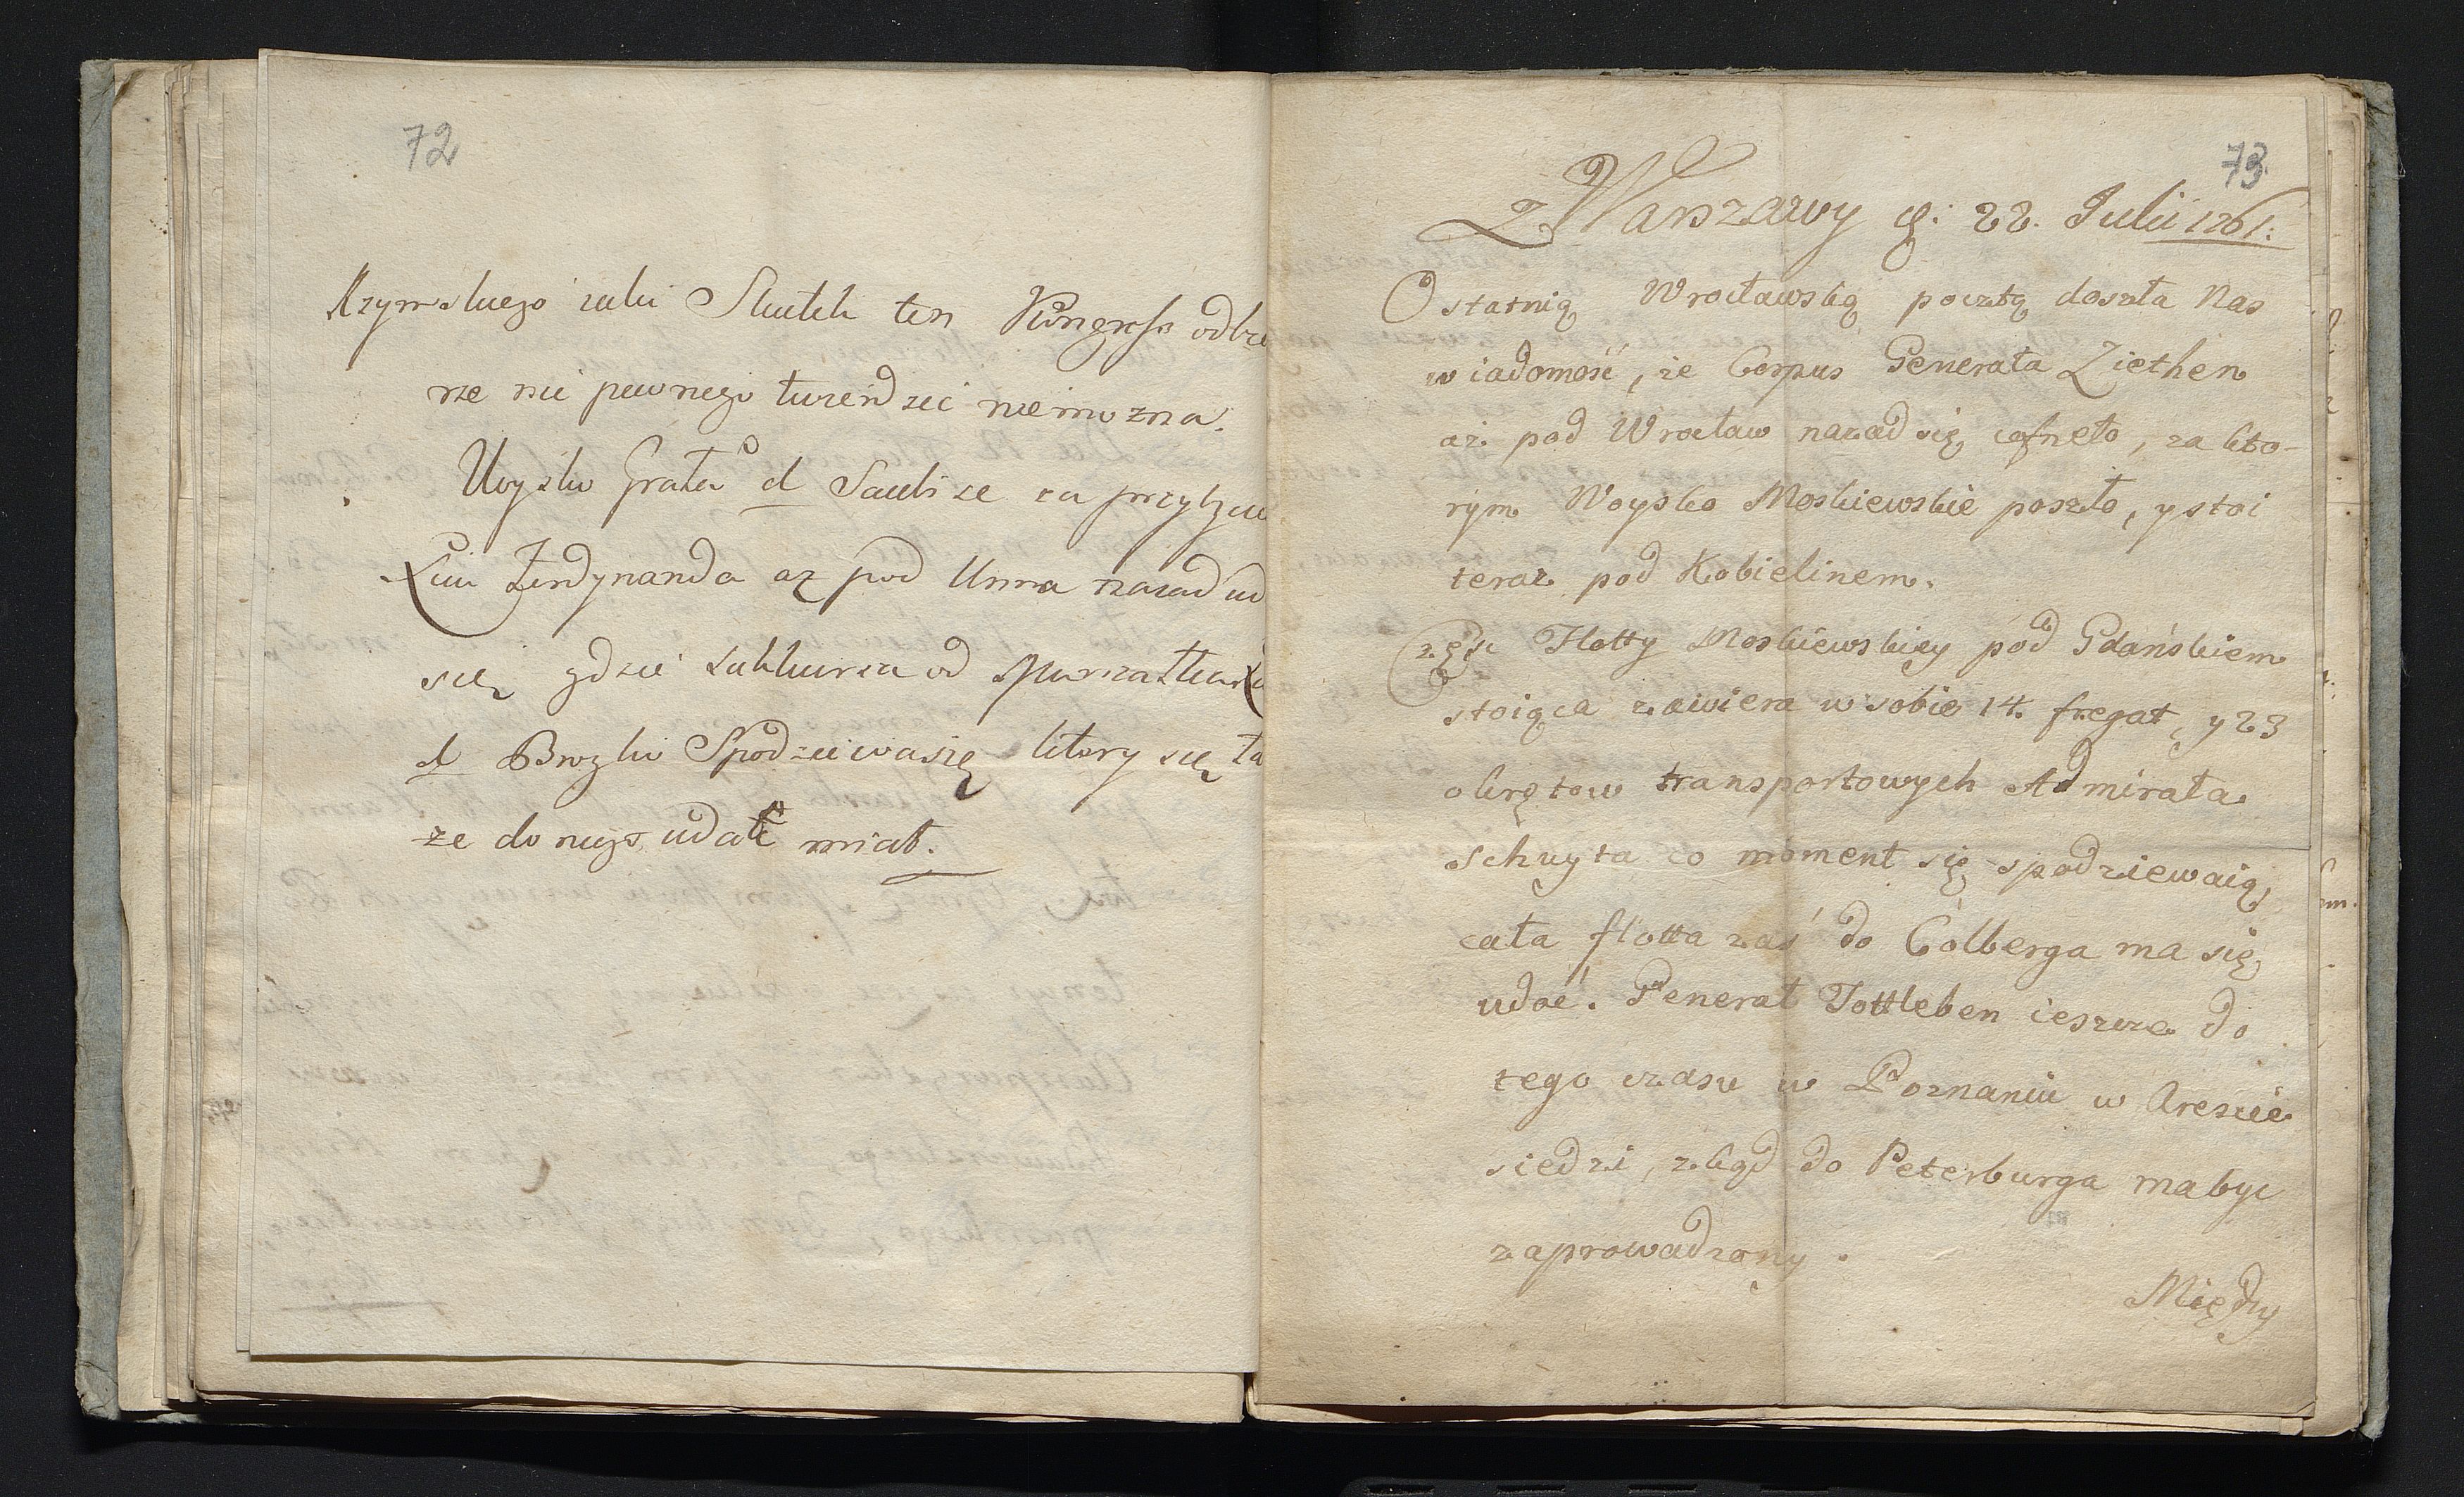 72
Rzymskiego iaki Skutek ten Kongress odbie
rze nic pewnego twierdzić nie mozna.
Woysko Grała d Saubize za przybyciu
Xcia Ferdynanda az pod Unna nazad ud
się gdzie sukkursu od Marszałka
d Broglio Spodziewasię ktory się ta
ze do niego udać miał.
73
Z Warszawy d: 22. Julii 1761.
Ostatnią Wrocławską pocztą doszła nas
wiadomość, że Corpus Generała Ziethen
aż pod Wrocław nazad się cofneło, za kto-
rym Woysko Moskiewskie poszło, y stoi
teraz pod Kobielinem.
Część Flotty Moskiewskiey pod Gdańskiem
stoiąca zawiera w sobie 14. fregat, y 23
okrętow transportowych Admirała
Schuyta co moment się spodziewaią,
cała flotta zaś do Colberga ma się
udać. Generał Tottleben ieszcze do
tego czasu w Poznaniu w Areszcie
siedzi, zkąd do Peterburga ma byc
zaprowadzony.
Między